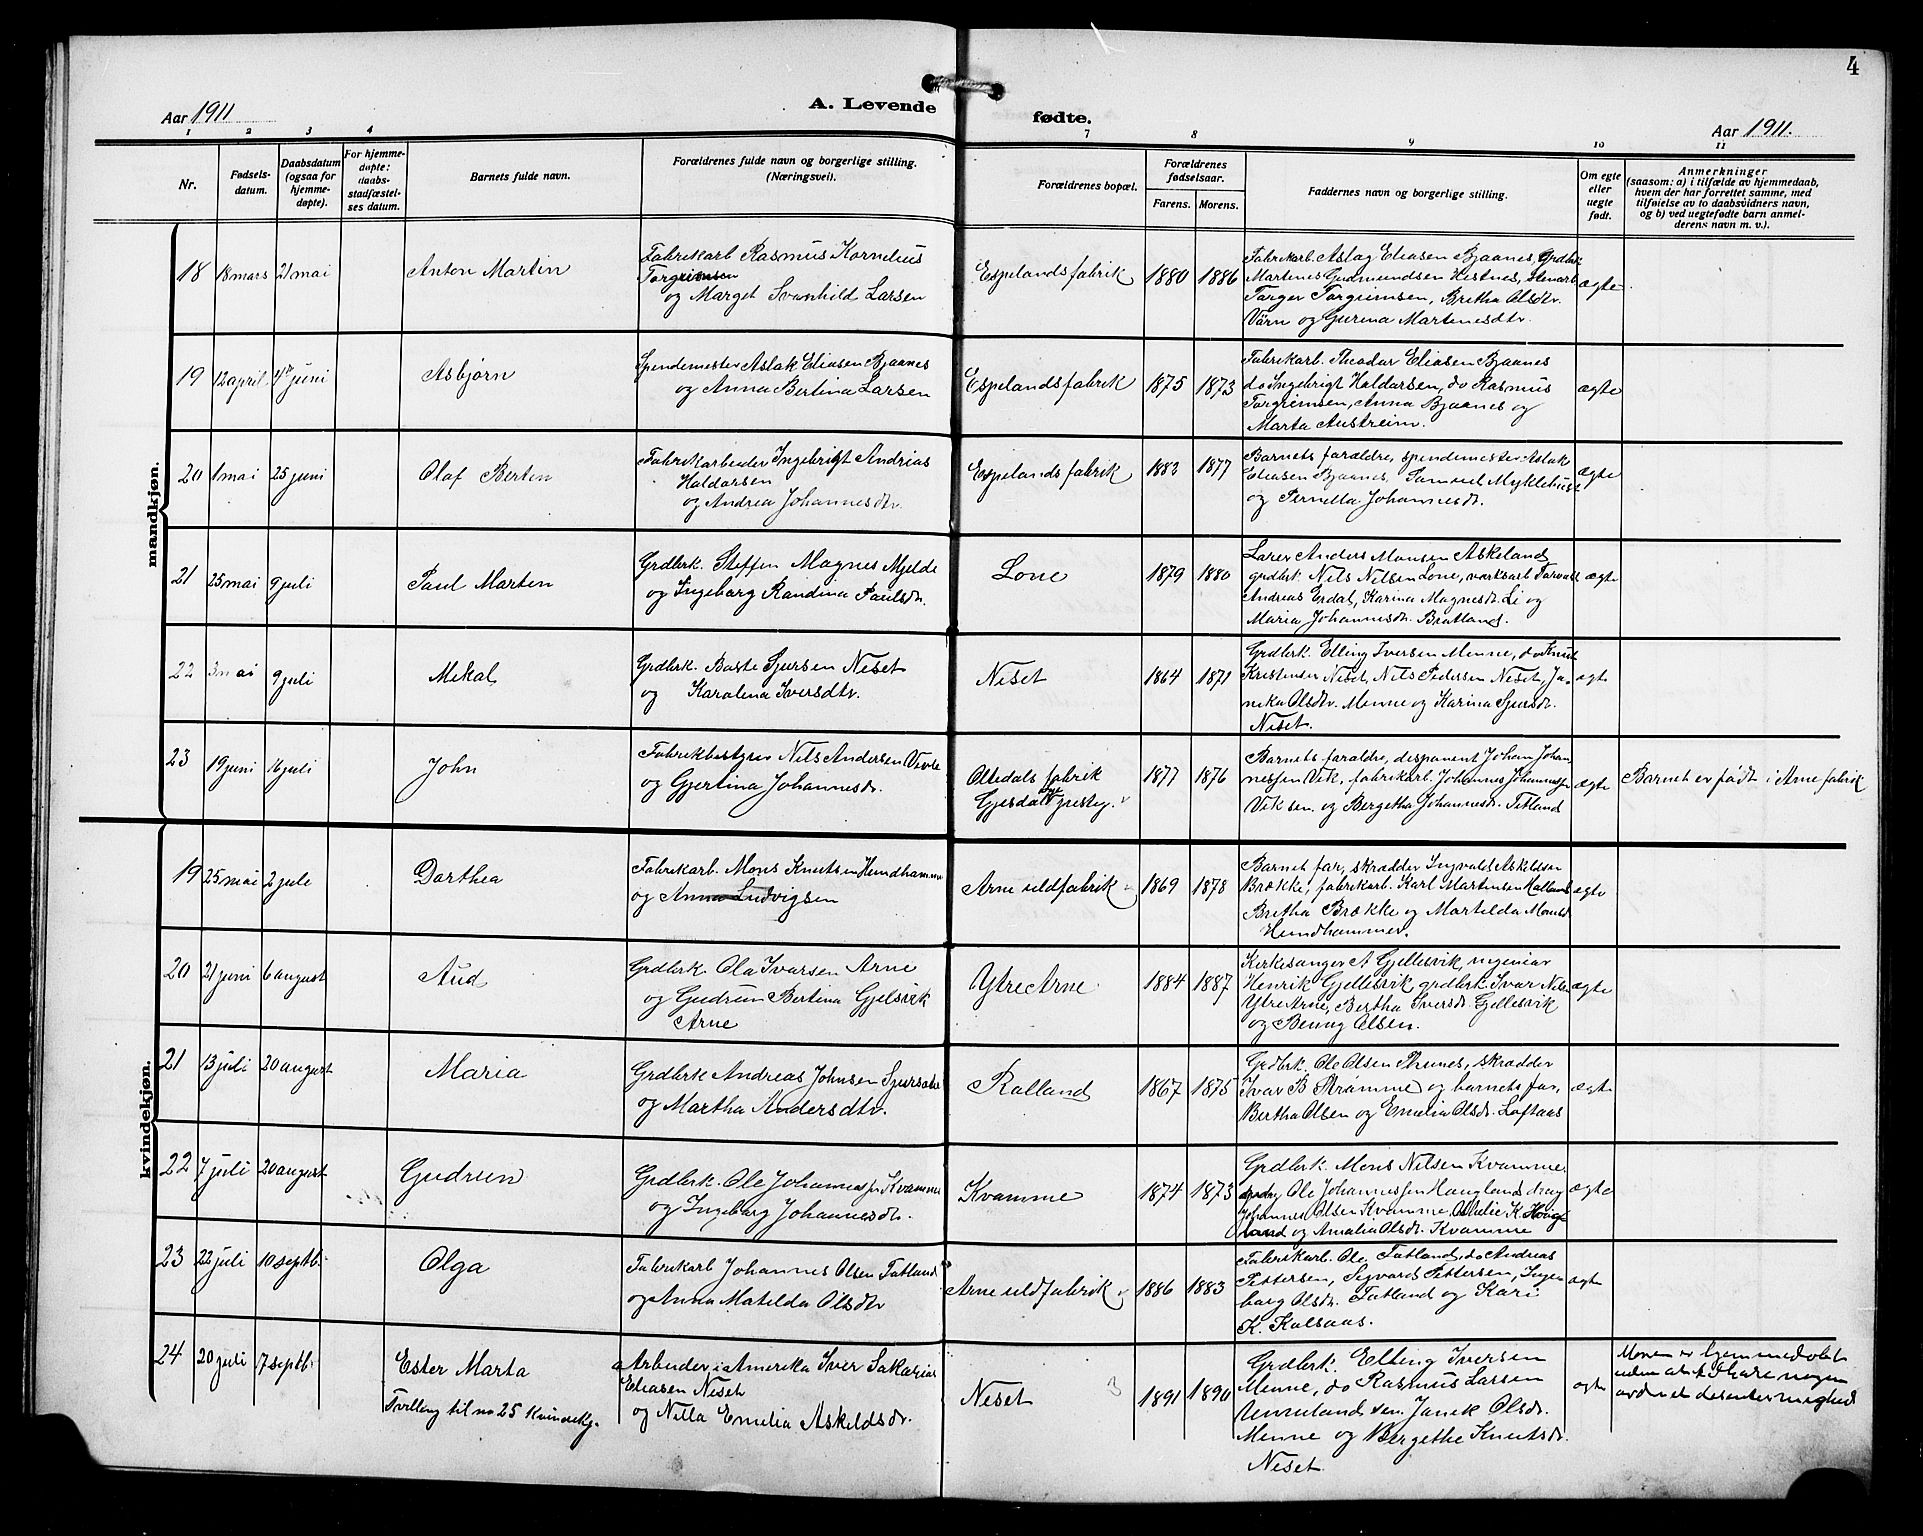 4
Aar 1911
A. Levende
fødte.
Aar 1911.
1 2 3 4 7 8 9 10 11
Nr.
Fødsels-
datum.
Daabsdatum
(ogsaa for
hjemme-
døpte).
For hjemme-
døpte:
daabs-
stadfæstel-
ses datum.
Barnets fulde navn.
Forældrenes fulde navn og borgerlige stilling.
(Næringsvei).
Forældrenes bopæl.
Forældrenes
fødselsaar.
Farens.
Morens.
Faddernes navn og borgerlige stilling.
Om egte
eller
uegte
født.
Anmerkninger
(saasom: a) i tilfælde av hjemmedaab,
hvem der har forrettet samme, med
tilføielse av to daabsvidners navn,
og b) ved uegtefødte barn anmel-
derens navn m. v.).
mandkjøn.
18 18 mars 21 mai
Anton Martin
Fabrikarb Rasmus Kornelius
Torgrimsen
og Marget Svanhild Larsen
Espelandsfabrik 1880 1886
Fabrikarb. Aslag Eliasen Bjaanes, Grdbrk
Martines Gudmundsen Hestnes, Stenarb
Torger Torgrimsen, Bretha Olsdtr.
Vårn og Gurina Martinesdtr.
ægte
19 12 april 4de juni
Asbjørn
Spindemester Aslak Eliasen Bjaanes
og Anna Bertina Larsen
Espelandsfabrik 1875 1873
Fabrikarb. Theodor Eliasen Bjaanes
do Ingebrigt Haldorsen, do Rasmus
Torgrimsen, Anna Bjaanes og
Marta Austreim.
ægte
20 1 mai 25 juni
Olaf Bertin
Fabrikarbeider Ingebrigt Andrias
Haldorsen
og Andrea Johannesdtr.
Espelandsfabrik 1882 1877
Barnets forældre, spindemester Aslak
Eliasen Bjaanes, Samuel Myklebust
og Pernilla Johannesdr.
ægte
21 25 mai 9 juli
Paul Martin
Grdbrk. Steffen Magnes Mjelde
og Ingeborg Randina Paulsdr.
Lone 1879 1880
Lærer Anders Monsen Askeland,
grdbrk. Nils Nilsen Lone, værksarb
Andreas Erdal, Karina Magnesdr. Li og
Maria Johannesdr. Bratland.
ægte
22 3 mai 9 juli
Mikal
Grdbrk. Baste Sjursen Neset
og Karolina Iversdtr.
Neset 1864 1871
Grdbrk. Elling Iversen Minne, do Knut
Kristensen Neset, Nils Pedersen Neset, Ja-
nika Olsdtr. Minne og Karina Sjursdr.
Neset.
ægte
23 19 juni 16 juli
John
Fabrikbestyrer Nils Andersen
og Gjertina Johannesdr.
Oltedals fabrik
Gjesdal
1877 1876
Barnets forældre, disponent Johan Johan-
nessen Vik, fabrikarb. Johannes Johannessen
Vik sen. og Bergetha Johannesdr. Titland
ægte
Barnet er født i Arne fabrik
kvindekjøn.
19 25 mai 2 juli
Dorthea
Fabrikarb. Mons Knutsen Hundhammer
og Anna Ludvigsen
Arne uldfabrik 1869 1878
Barnet far, skrædder Ingvald Askildsen
Brække, fabrikarb. Karl Martinsen Halland
Bretha Brække og Martilda Monsd
Hundhammer.
ægte
20 21 juni 6 august
Aud
Grdbrk. Ola Ivarsen Arne
og Gudrun Bertina Gjelsvik
Arne
Ytre Arne 1884 1887
Kirkesanger A Gjellesvik, ingeniør
Henrik Gjellesvik grdbrk. Ivar Nilsen
Ytre Arne, Bertha Iversdr. Gjellesvik
og Benny Olsen.
ægte
21 13 juli 20 august
Maria
Grdbrk Andreas Johnsen
og Martha Andersdtr.
Ralland 1867 1875
Grdbrk. Ole Olsen Thunes, skrædder
Ivar B Strømme og barnets far,
Bertha Olsen og Emelia Olsdr. Loftaas
ægte
22 7 juli 20 august
Gudrun
Grdbrk. Ole Johannessen Kvamme
og Ingeborg Johannesdr.
Kvamme 1874 1873
Grdbrk. Mons Nilsen Kvamme,
Ole Johannessen Haugland,
Johannes Olsen Kvamme, K. Haug-
land og Amalia Olsdr. Kvamme
ægte
23 22 juli 10 septb.
Olga
Fabrikarb Johannes Olsen Tatland
og Anna Matilda Olsdtr
Arne uldfabrik 1886 1883
Fabrikarb. Ole Tatland, do Andreas
Pettersen, Sigvard Pettersen, Inge-
borg Olsdr. Tatland og Kari
K. Kalsaas.
ægte
24 20 juli 17 septb.
Ester Marta
Tvilling til no 25 kvindekj.
Arbeider i Amerika Iver Sakarias
Eliasen Neset
og Nilla Emelia Askildsdr.
Neset 3 1891 1890
Grdbrk. Elling Iversen
Minne, do Rasmus Larsen
Unneland sen. Janik Olsdr.
Minne og Bergethe Knutsdr.
Neset
ægte
Moren er hjemmedøbt